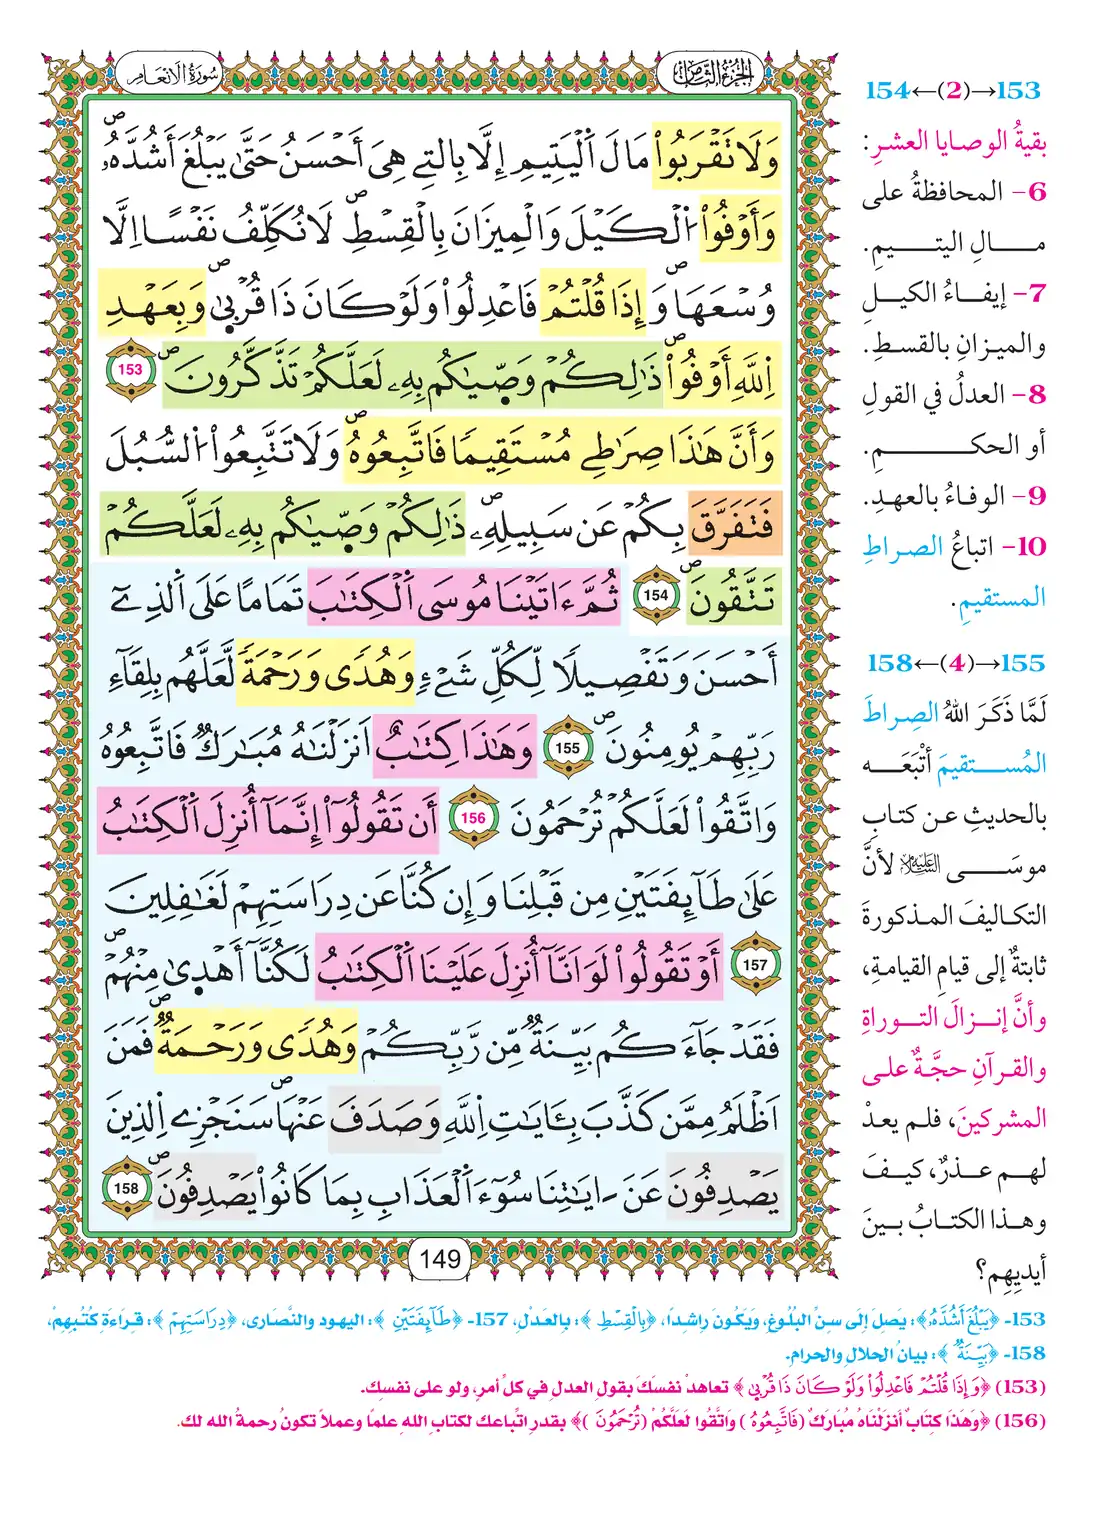 سُورَةُ الأَنْعَامِ
الجُزْءُ الثَّامِنُ
وَلَا تَقْرَبُواْ مَالَ اَلْيَتِيمِ إِلَّا بِالتِے هِىَ أَحْسَنُ حَتَّىٰ يَبْلُغَ أَشُدَّهُۥ
وَأَوْفُواْ اُلْكَيْلَ وَالْمِيزَانَ بِالْقِسْطِ لَا نُكَلِّفُ نَفْساً اِلَّا
وُسْعَهَا وَإِذَا قُلْتُمْ فَاعْدِلُواْ وَلَوْ كَانَ ذَا قُرْبىٰ وَبِعَهْدِ
اِللَّهِ أَوْفُواْ ذَٰلِكُمْ وَصّىٰكُم بِهِۦ لَعَلَّكُمْ تَذَّكَّرُونَ 153
وَأَنَّ هَٰذَا صِرَٰطِے مُسْتَقِيماً فَاتَّبِعُوهُ وَلَا تَتَّبِعُواْ اُلسُّبُلَ
فَتَفَرَّقَ بِكُمْ عَن سَبِيلِهِۦ ذَٰلِكُمْ وَصّىٰكُم بِهِۦ لَعَلَّكُمْ
تَتَّقُونَ 154 ثُمَّ ءَاتَيْنَا مُوسَى اَلْكِتَٰبَ تَمَاماً عَلَى اَلذِےٓ
أَحْسَنَ وَتَفْصِيلاً لِّكُلِّ شَےْءٍ وَهُدىً وَرَحْمَةً لَّعَلَّهُم بِلِقَآءِ
رَبِّهِمْ يُومِنُونَ 155 وَهَٰذَا كِتَٰبٌ اَنزَلْنَٰهُ مُبَٰرَكٌ فَاتَّبِعُوهُ
وَاتَّقُواْ لَعَلَّكُمْ تُرْحَمُونَ 156 أَن تَقُولُوٓاْ إِنَّمَآ أُنزِلَ اَلْكِتَٰبُ
عَلَىٰ طَآئِفَتَيْنِ مِن قَبْلِنَا وَإِن كُنَّا عَن دِرَاسَتِهِمْ لَغَٰفِلِينَ
157 أَوْ تَقُولُواْ لَوَ اَنَّآ أُنزِلَ عَلَيْنَا اَلْكِتَٰبُ لَكُنَّآ أَهْدىٰ مِنْهُمْ
فَقَدْ جَآءَكُم بَيِّنَةٌ مِّن رَّبِّكُمْ وَهُدىً وَرَحْمَةٌ فَمَنَ
اَظْلَمُ مِمَّن كَذَّبَ بِـَٔايَٰتِ اِللَّهِ وَصَدَفَ عَنْهَا سَنَجْزِے اِلذِينَ
يَصْدِفُونَ عَنَ ـايَٰتِنَا سُوٓءَ اَلْعَذَابِ بِمَا كَانُواْ يَصْدِفُونَ 158
149
154←(2)→153
بقيةُ الوصايا العشرِ:
6- المحافظةُ على
مالِ اليتيمِ.
7- إيفاءُ الكيلِ
والميزانِ بالقسطِ.
8- العدلُ في القولِ
أو الحكمِ.
9- الوفاءُ بالعهدِ.
10- اتباعُ الصراطِ
المستقيمِ.
158←(4)→155
لَمَّا ذَكَرَ اللهُ الصِراطَ
المُستقيمَ أتْبَعَه
بالحديثِ عن كتابِ
موسَى عليه السلام لأنَّ
التكاليفَ المذكورةَ
ثابتةٌ إلى قيامِ القيامةِ،
وأنَّ إنزالَ التوراةِ
والقرآنِ حجَّةٌ على
المشركينَ، فلم يعدْ
لهم عذرٌ، كيفَ
وهذا الكتابُ بينَ
أيديهِم؟
153- ﴿يَبْلُغَ أَشُدَّهُۥ﴾: يَصلَ إلَى سِنِّ البُلُوغِ، ويَكُونَ راشِداً، ﴿بِالْقِسْطِ﴾: بالعَدْلِ، 157- ﴿طَآئِفَتَيْنِ﴾: اليهود والنَّصارى، ﴿دِرَاسَتِهِمْ﴾: قراءَةِ كُتُبِهِمْ،
158- ﴿بَيِّنَةٌ﴾: بيانُ الحلالِ والحرامِ.
(153) ﴿وَإِذَا قُلْتُمْ فَاعْدِلُواْ وَلَوْ كَانَ ذَا قُرْبىٰ﴾ تعاهدْ نفسَكَ بقولِ العدلِ في كلِّ أمرٍ، ولو على نفسِكَ.
(156) ﴿وَهَذَا كِتَابٌ أَنزَلْنَاهُ مُبَارَكٌ (فَاتَّبِعُوهُ) وَاتَّقُوا لَعَلَّكُمْ (تُرْحَمُونَ)﴾ بقدرِ اتِّباعك لكتابِ اللهِ علماً وعملاً تكونُ رحمةُ الله لك.